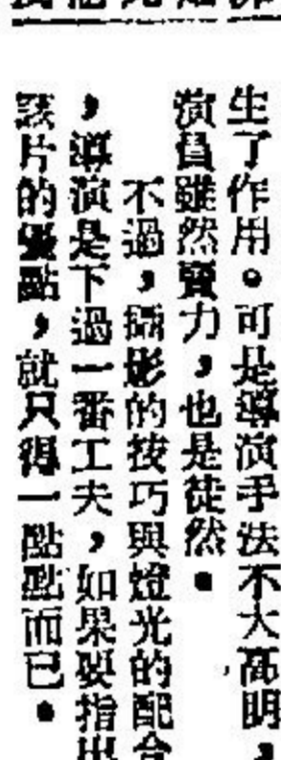 生了作用。可是導演手法不大高明，
演員雖然賣力，也是徒然。
不過，攝影的技巧與燈光的配合
，導演是下過一番工夫，如果硬指出
該片的優點，就只得一點點而已。